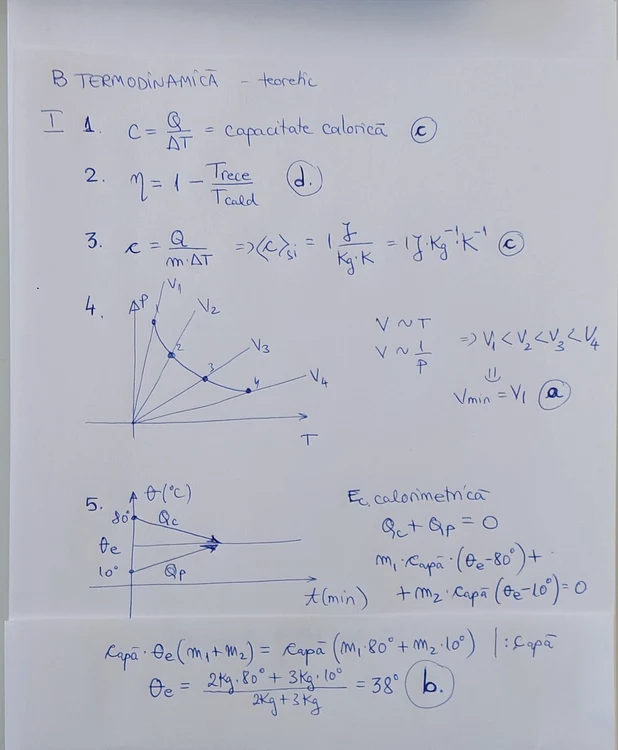 B TERMODINAMICĂ – teoretic
I 1. C = Q/ΔT = capacitate calorică (c)
2. η = 1 – Trece/Tcald (d.)
3. c = Q/(m·ΔT) => <c>si = 1 J/(Kg·K) = 1 J·Kg⁻¹·K⁻¹ (c)
4. P V₁ V₂ V₃ V₄ 1 2 3 4 T
V ~ T
V ~ 1/P => V₁ < V₂ < V₃ < V₄
⇓
Vmin = V₁ (a)
5. θ(°C) 80° Qc θe 10° Qp t(min)
Ec. calorimetrică
Qc + Qp = 0
m₁·capă·(θe-80°) +
+ m₂·capă (θe-10°) = 0
capă·θe(m₁+m₂) = capă (m₁·80° + m₂·10°) |:capă
θe = (2Kg·80° + 3Kg·10°)/(2Kg+3Kg) = 38° (b.)